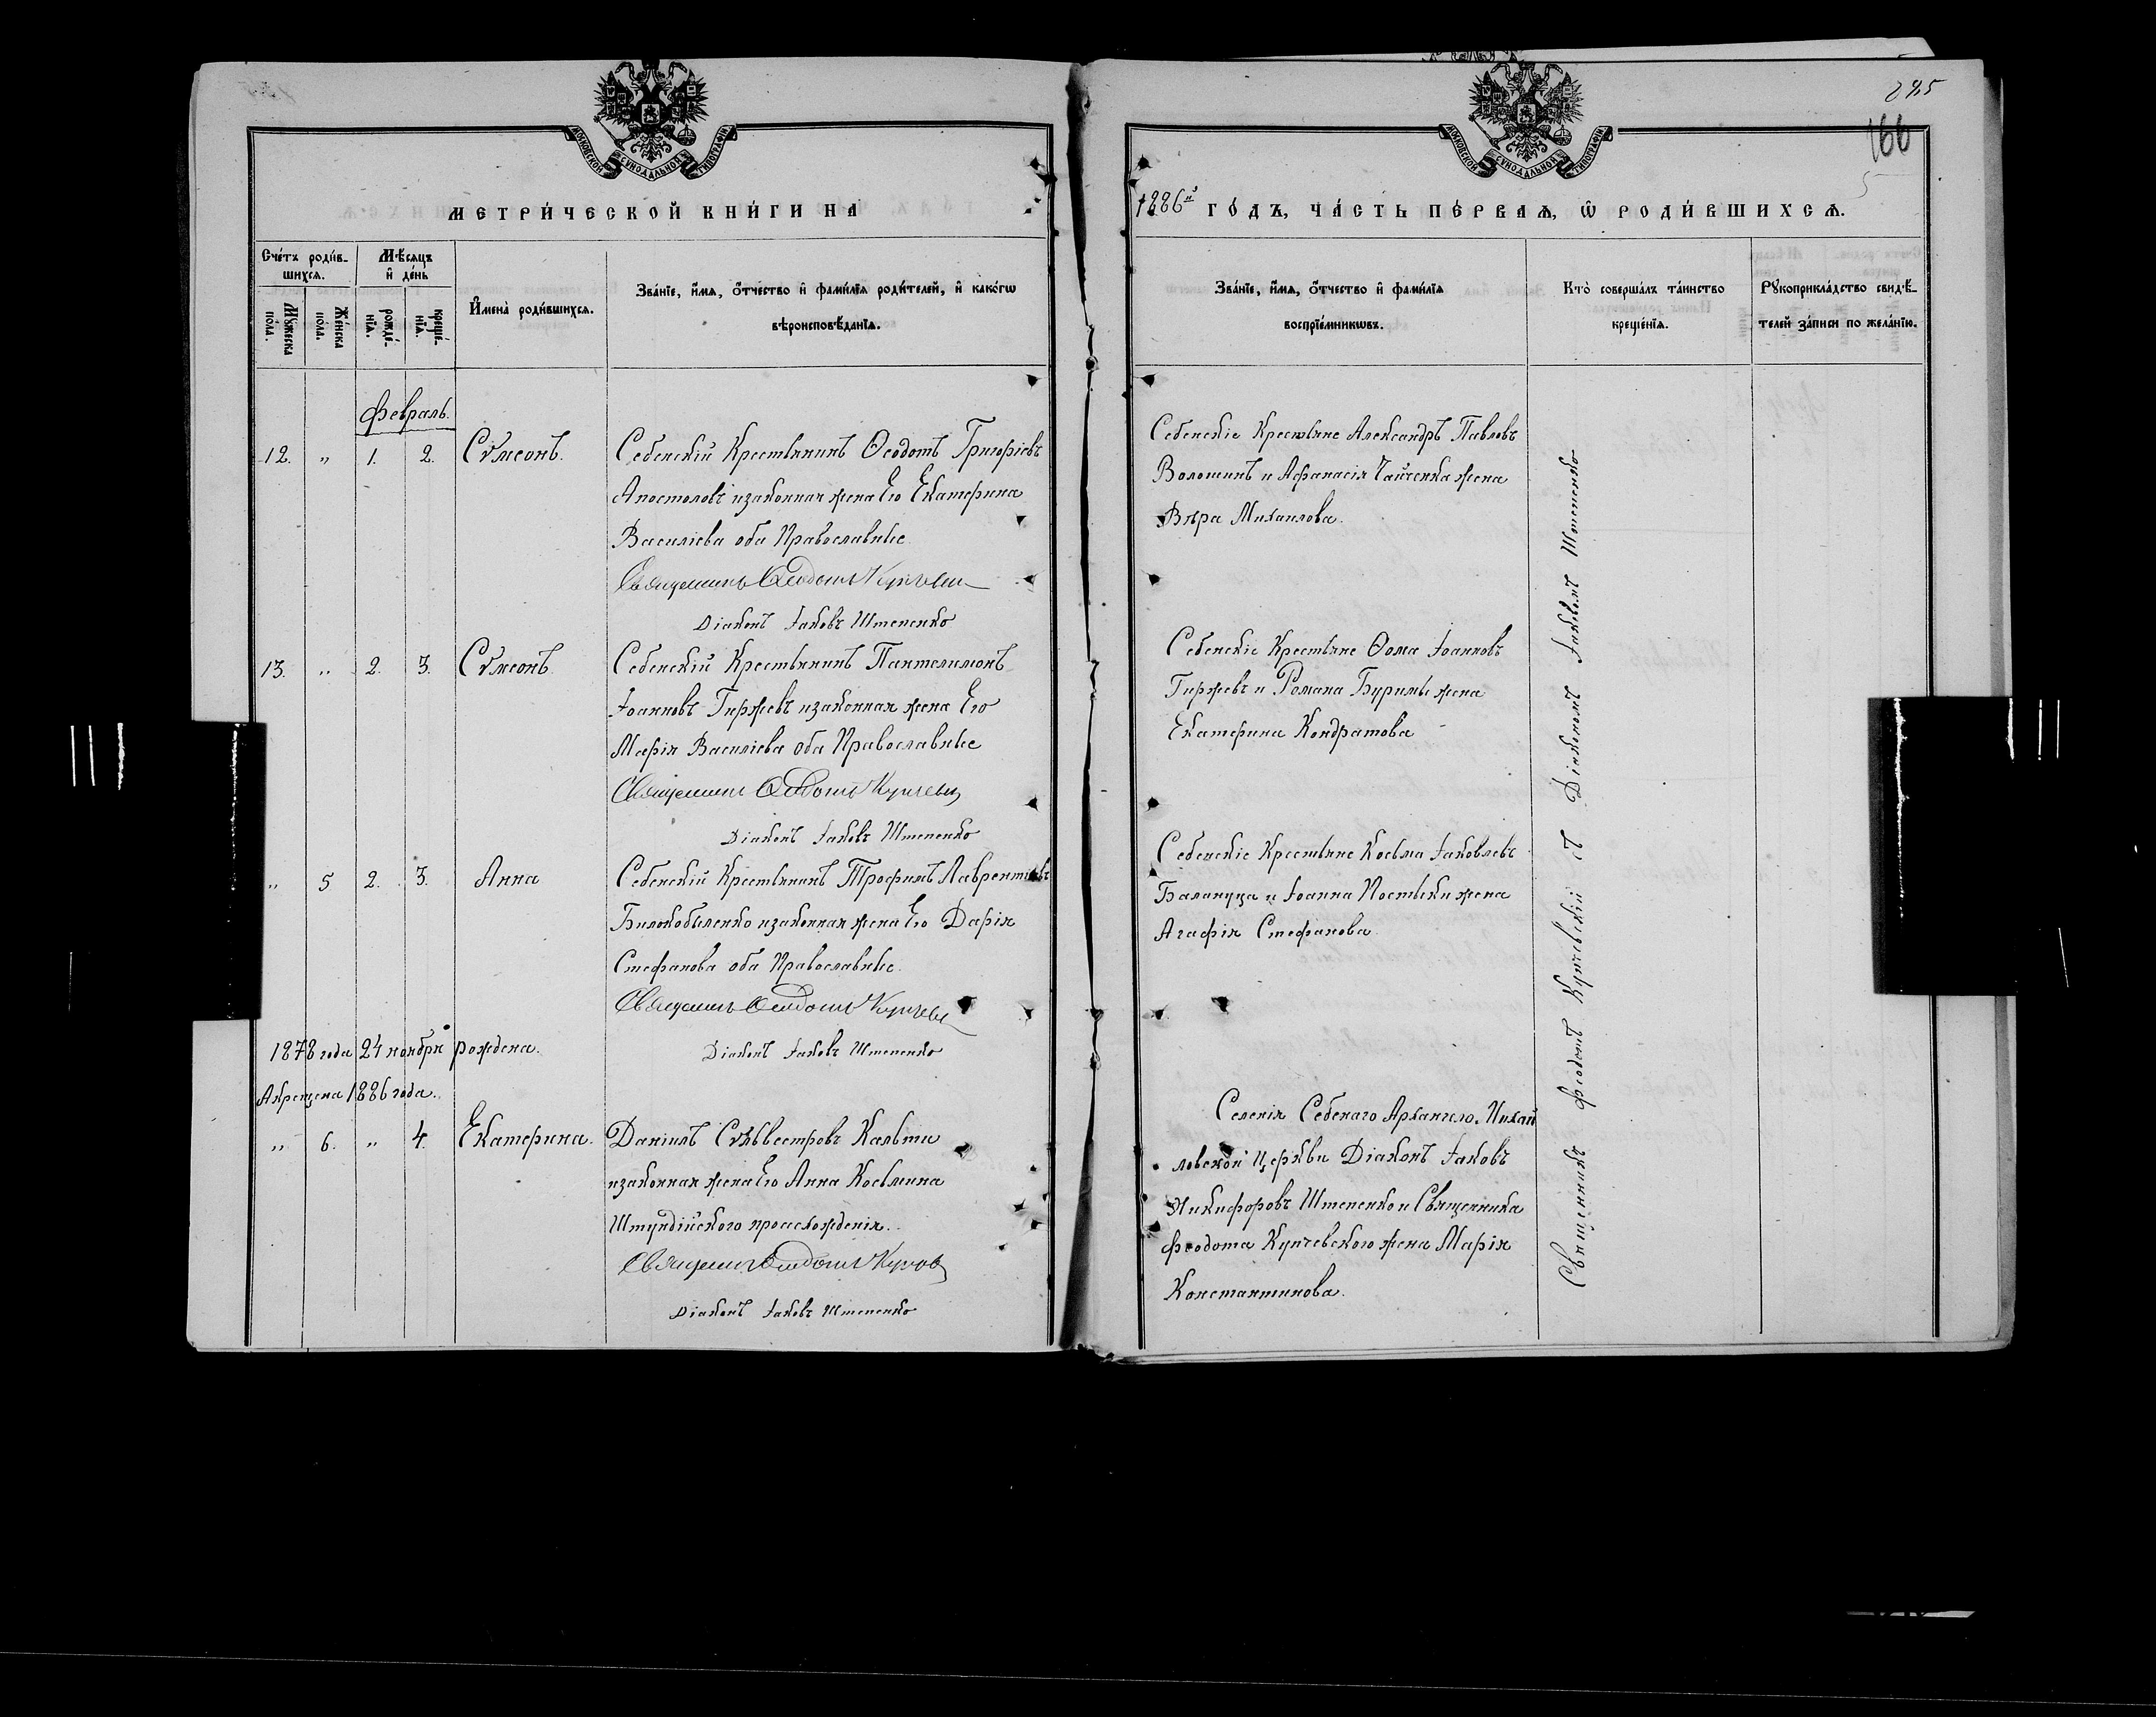 МОСКОВСКОЙ СѴНОДАЛЬНОЙ ТИПОГРАФІИ
МЕТРИ́ЧЕСКОЙ КНИ́ГИ НА̀
Сче́тъ роди́в-
шихсѧ.
Мѣ́сѧцъ
и҆ де́нь
Мꙋ́жеска
по́ла.
Же́нска
по́ла.
рожде́-
нїѧ.
креще́-
нїѧ.
И҆мена̀ роди́вшихсѧ.
Зва́нїе, и҆́мѧ, ѻ҆́тчество и҆ фами́лїѧ роди́телей, и҆ како́гѡ
вѣроисповѣ́данїѧ.
Февраль.
12. „ 1. 2. Сѵмеонъ. Себенскій Крестьянинъ Ѳеодотъ Григоріевъ
Апостоловъ изаконная жена Его Екатерина
Василіева оба Православные
Священникъ Ѳеодотъ
Діаконъ Іаковъ Штепенко
13. „ 2. 3. Сѵмеонъ Себенскій Крестьянинъ Пантелимонъ
Іоанновъ Гиржевъ изаконная жена Его
Марія Василіева оба Православные
Священникъ Ѳеодотъ
Діаконъ Іаковъ Штепенко
„ 5 2. 3. Анна Себенскій Крестьянинъ Трофимъ Лаврентіевъ
Билокобыленко изаконная жена Его Дарія
Стефанова оба Православные.
Священникъ Ѳеодотъ
1878 года 24 ноября рождена.
Діаконъ Іаковъ Штепенко
Акрещена 1886 года.
„ 6. „ 4. Екатерина. Даніилъ Сѵльвестровъ Кальти
изаконная жена Его Анна Косьмина
Штундійского происхожденія.
Священникъ Ѳеодотъ
Діаконъ Іаковъ Штепенко
295
166
5
МОСКОВСКОЙ СѴНОДАЛЬНОЙ ТИПОГРАФІИ
1886й ГО́ДЪ, ЧА́СТЬ ПЕ́РВАѦ, Ѡ҆ РОДИ́ВШИХСѦ.
Зва́нїе, и҆́мѧ, ѻ҆́тчество и҆ фами́лїѧ
воспрїе́мникѡвъ.
Кто̀ соверша́лъ та́инство
креще́нїѧ.
Рꙋкоприкла́дство свидѣ́-
телей за́писи по жела́нїю.
Себенскіе Крестьяне Александръ Павловъ
Волошинъ и Афанасія Чайченка жена
Вѣра Михаилова.
Себенскіе Крестьяне Ѳома Іоанновъ
Гиржевъ и Романа Буримы жена
Екатерина Кондратова
Себенскіе Крестьяне Косьма Іаковлевъ
Балануца и Іоанна Постыки жена
Агафія Стефанова
Селенія Себенаго Архангело-Михай
ловской Церкви Діаконъ Іаковъ
Никифоровъ Штепенко и Священника
Феодота Купчевского жена Марія
Константинова.
Священникъ Феодотъ Купчевскій съ Діакономъ Іаковомъ Штепенко